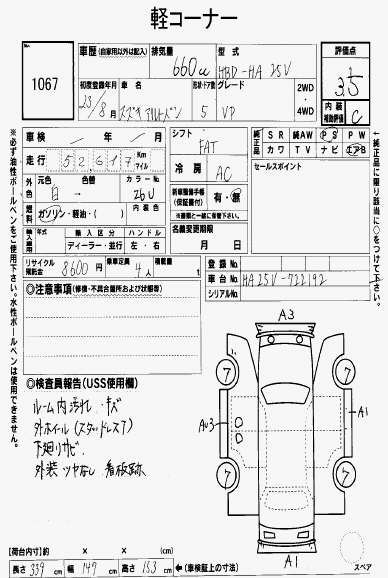 軽コーナー
1067
車歴 (自家用以外は記入)
排気量 660cc
型式 HBD-HA25V
初度登録年月 23/8月
車名 スズキ アルトバン
形状・ドア数 5
グレード VP
2WD
・
4WD
評価点 3.5
内装補助評価 C
車検 年 月
走行 52,617 Km マイル
外色 元色 白 →
色替
カラーNo. 26U
燃料 ガソリン・軽油・( )
内装色
輸入車用 年式
輸入区分 ディーラー・並行
ハンドル 左・右
リサイクル預託金 8600円
乗車定員 4人
積載量 t
シフト FAT
冷房 AC
新車整備手帳(保証書付) 有・無
※書類と一緒にご提出ください
名義変更期限
月 日
純正品 SR 純AW PS PW
カワ TV ナビ エアB
セールスポイント
登録No.
車台No. HA25V-722192
シリアルNo.
◎注意事項 (修復・不具合箇所および状態等)
◎検査員報告(USS使用欄)
ルーム内汚れ・キズ
外ホイール(スタッドレス7)
下廻りサビ
外装ツヤなし 看板跡
A3
7
7
AU3
A1
7
7
A1
スペア
[荷台内寸]約 × × (cm)
長さ 339 cm 幅 147 cm 高さ 153 cm ←(車検証上の寸法)
※必ず油性ボールペンをご使用下さい。水性ボールペンは使用できません。
純正品に限り該当に○をつけて下さい。